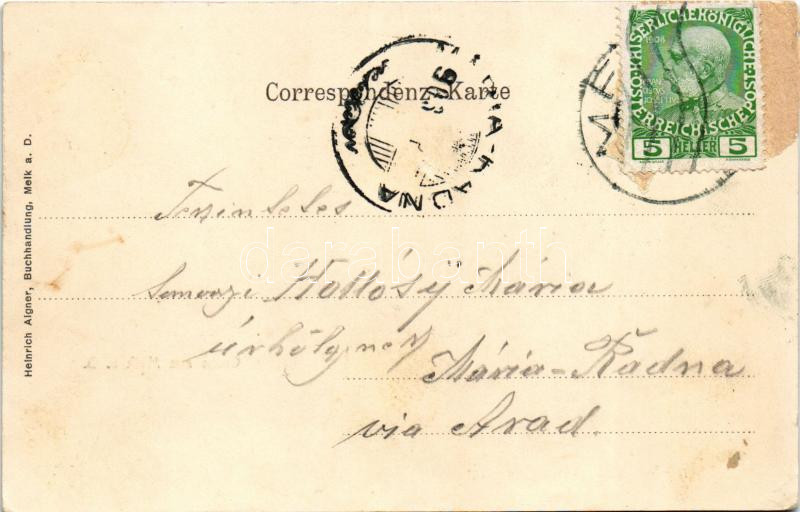 Correspondenz-Karte
KAISERLICHE KÖNIGLICHE
ÖSTERREICHISCHE POST
1908
5 HELLER 5
MÁRIA-RADNA
ME
Tekintetes
Hollósy Mária
úrhölgynek
Mária-Radna
via Arad.
Heinrich Aigner, Buchhandlung, Melk a. D.
darabanth